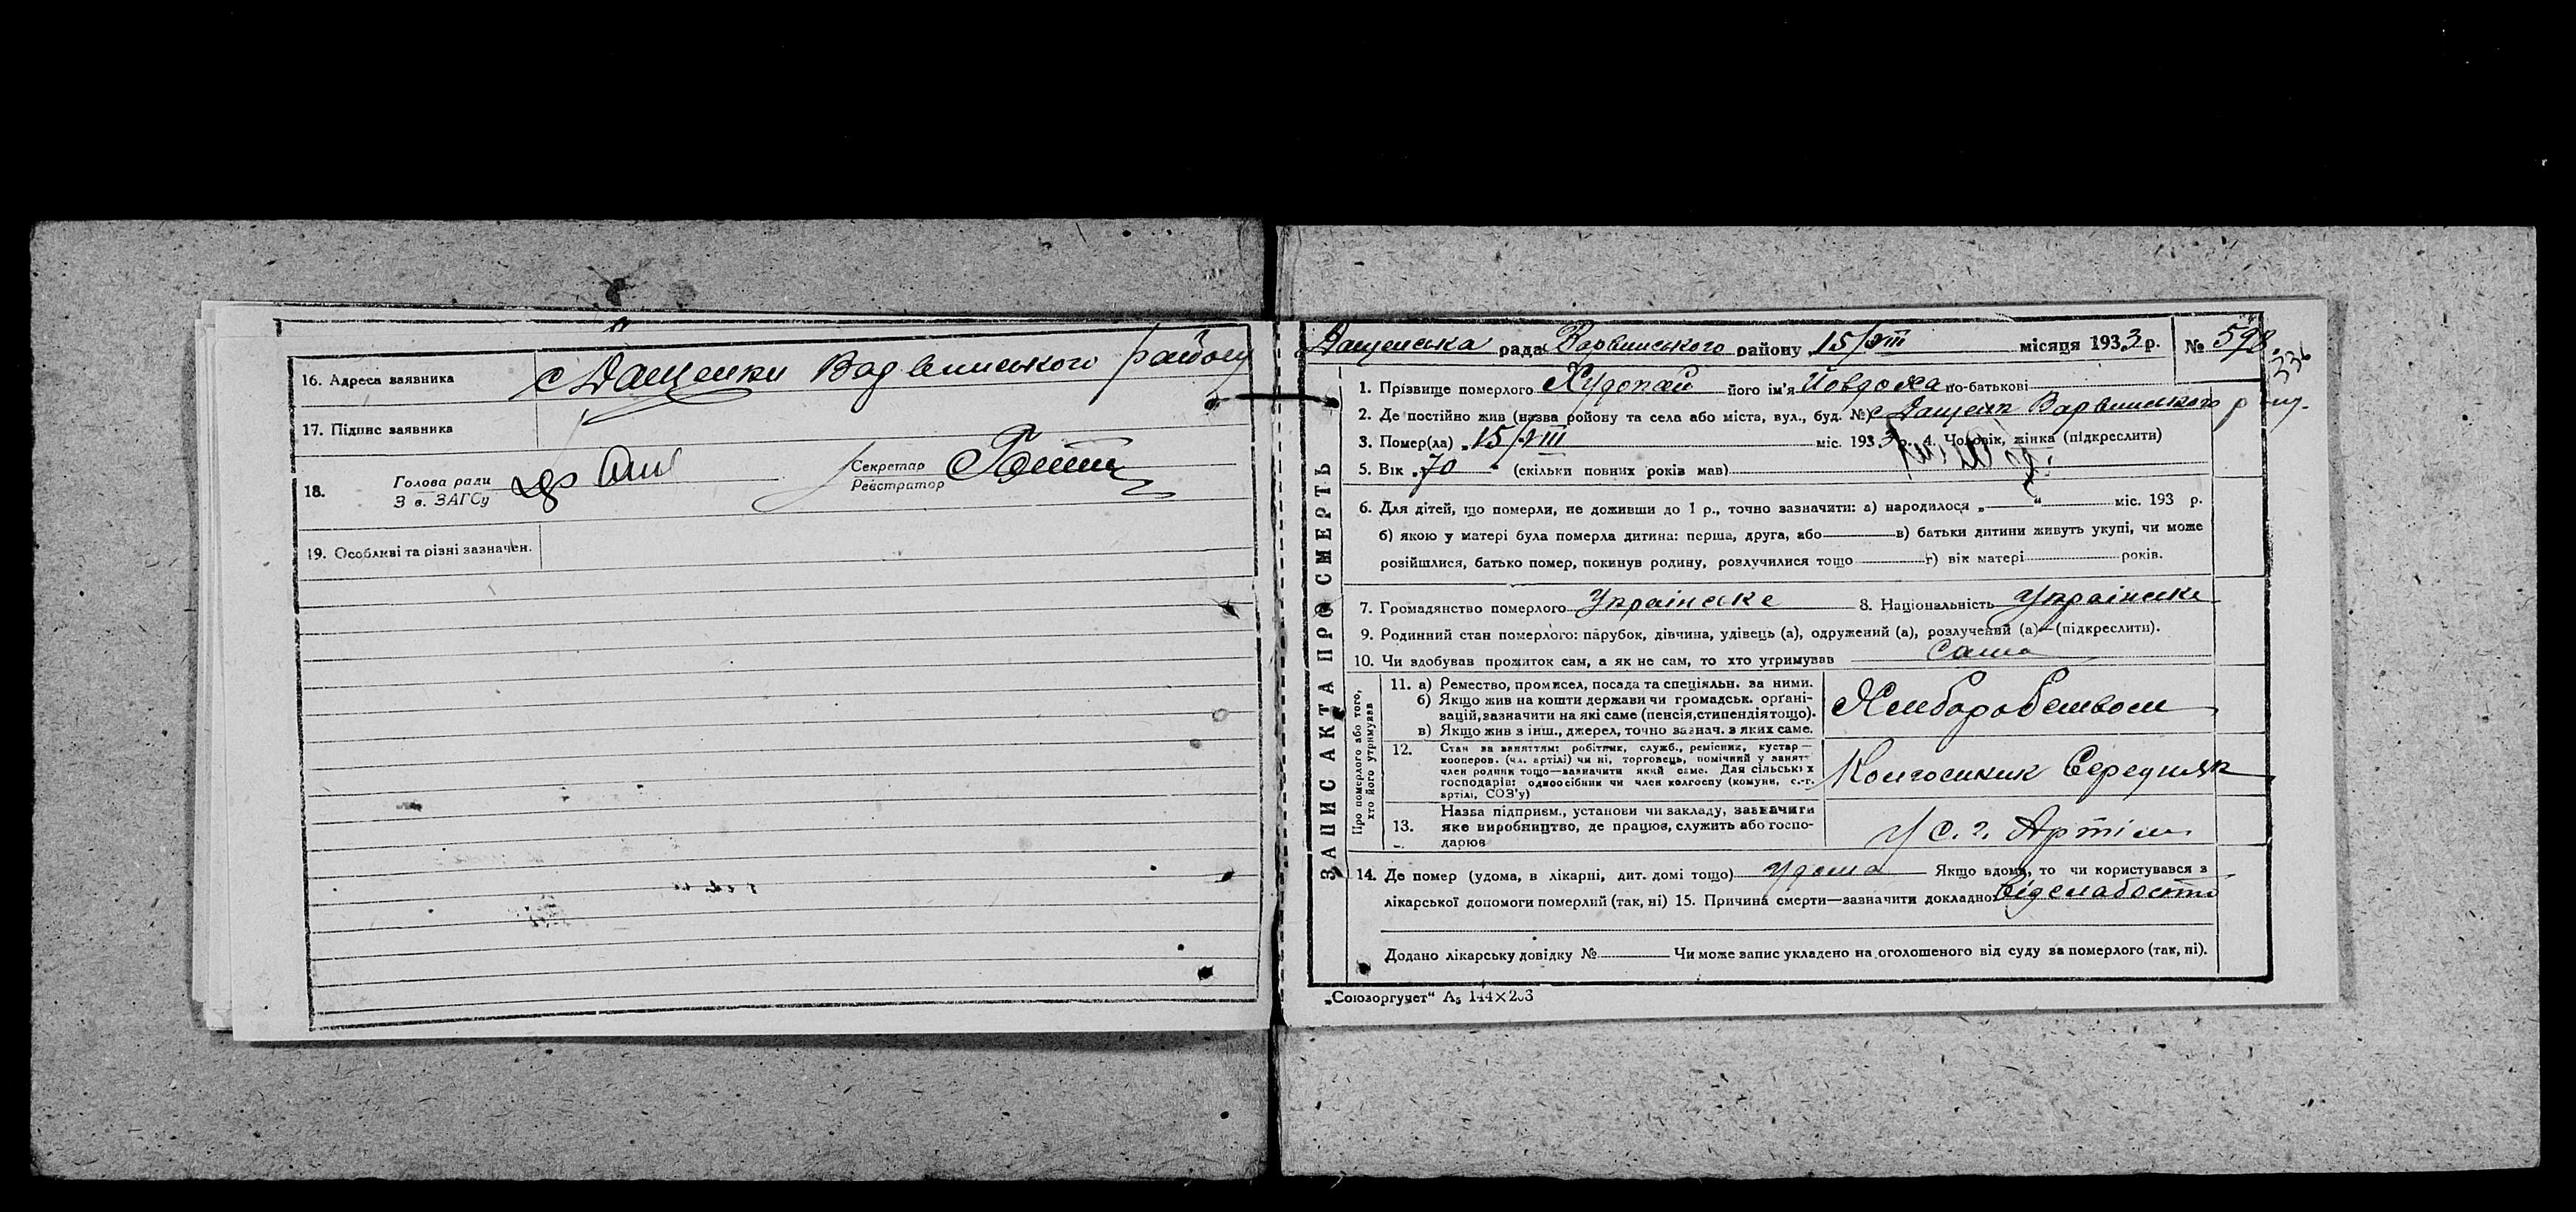 16. Адреса заявника с Дащенки Варвинського району
17. Підпис заявника
18. Голова ради
З в. ЗАГСу
Секретар
Реєстратор
19. Особливі та різні зазначен.
Дащенська рада Варвинського району 15/VIII місяця 1933 р. № 598
336
ЗАПИС АКТА ПРО СМЕРТЬ
1. Прізвище померлого Худопай його ім'я Йовдоха по-батькові
2. Де постійно жив (назва району та села або міста, вул., буд. №) с Дащенк Варвинського р ну.
3. Помер(ла) „15/VIII міс. 1933 р. 4. Чоловік, жінка (підкреслити)
5. Вік „70 " (скільки повних років мав)
6. Для дітей, що померли, не доживши до 1 р., точно зазначити: а) народилося „ " міс. 193 р.
б) якою у матері була померла дитина: перша, друга, або в) батьки дитини живуть укупі, чи може
розійшлися, батько помер, покинув родину, розлучилися тощо г) вік матері років.
7. Громадянство померлого Українське 8. Національність Українська
9. Родинний стан померлого: парубок, дівчина, удівець (а), одружений (а), розлучений (а)—(підкреслити).
10. Чи здобував прожиток сам, а як не сам, то хто утримував Сама
Про померлого або того,
хто його утримував
11. а) Ремество, промисел, посада та спеціяльн. за ними.
б) Якщо жив на кошти держави чи громадськ. органі-
зацій, зазначити на які саме (пенсія, стипендія тощо).
в) Якщо жив з інш., джерел, точно зазнач. з яких саме.
Хлиборобством
12. Стан за заняттям: робітник, служб., ремісник, кустар—
кооперов. (чл. артілі) чи ні, торговець, помічний у занят-
член родини тощо—зазначити який саме. Для сільських
господарів: одноосібник чи член колгоспу (комуни, с.-г.
артілі, СОЗ'у)
Колгосник Середняк
13. Назва підприєм., установи чи закладу, зазначити
яке виробництво, де працює, служить або госпо-
дарює
У С. г. Артіли
14. Де помер (удома, в лікарні, дит. домі тощо) удома Якщо вдома, то чи користувався з
лікарської допомоги померлий (так, ні) 15. Причина смерти—зазначити докладно: Від слабости
Додано лікарську довідку № Чи може запис укладено на оголошеного від суду за померлого (так, ні).
„Союзоргучет" А₅ 144×203